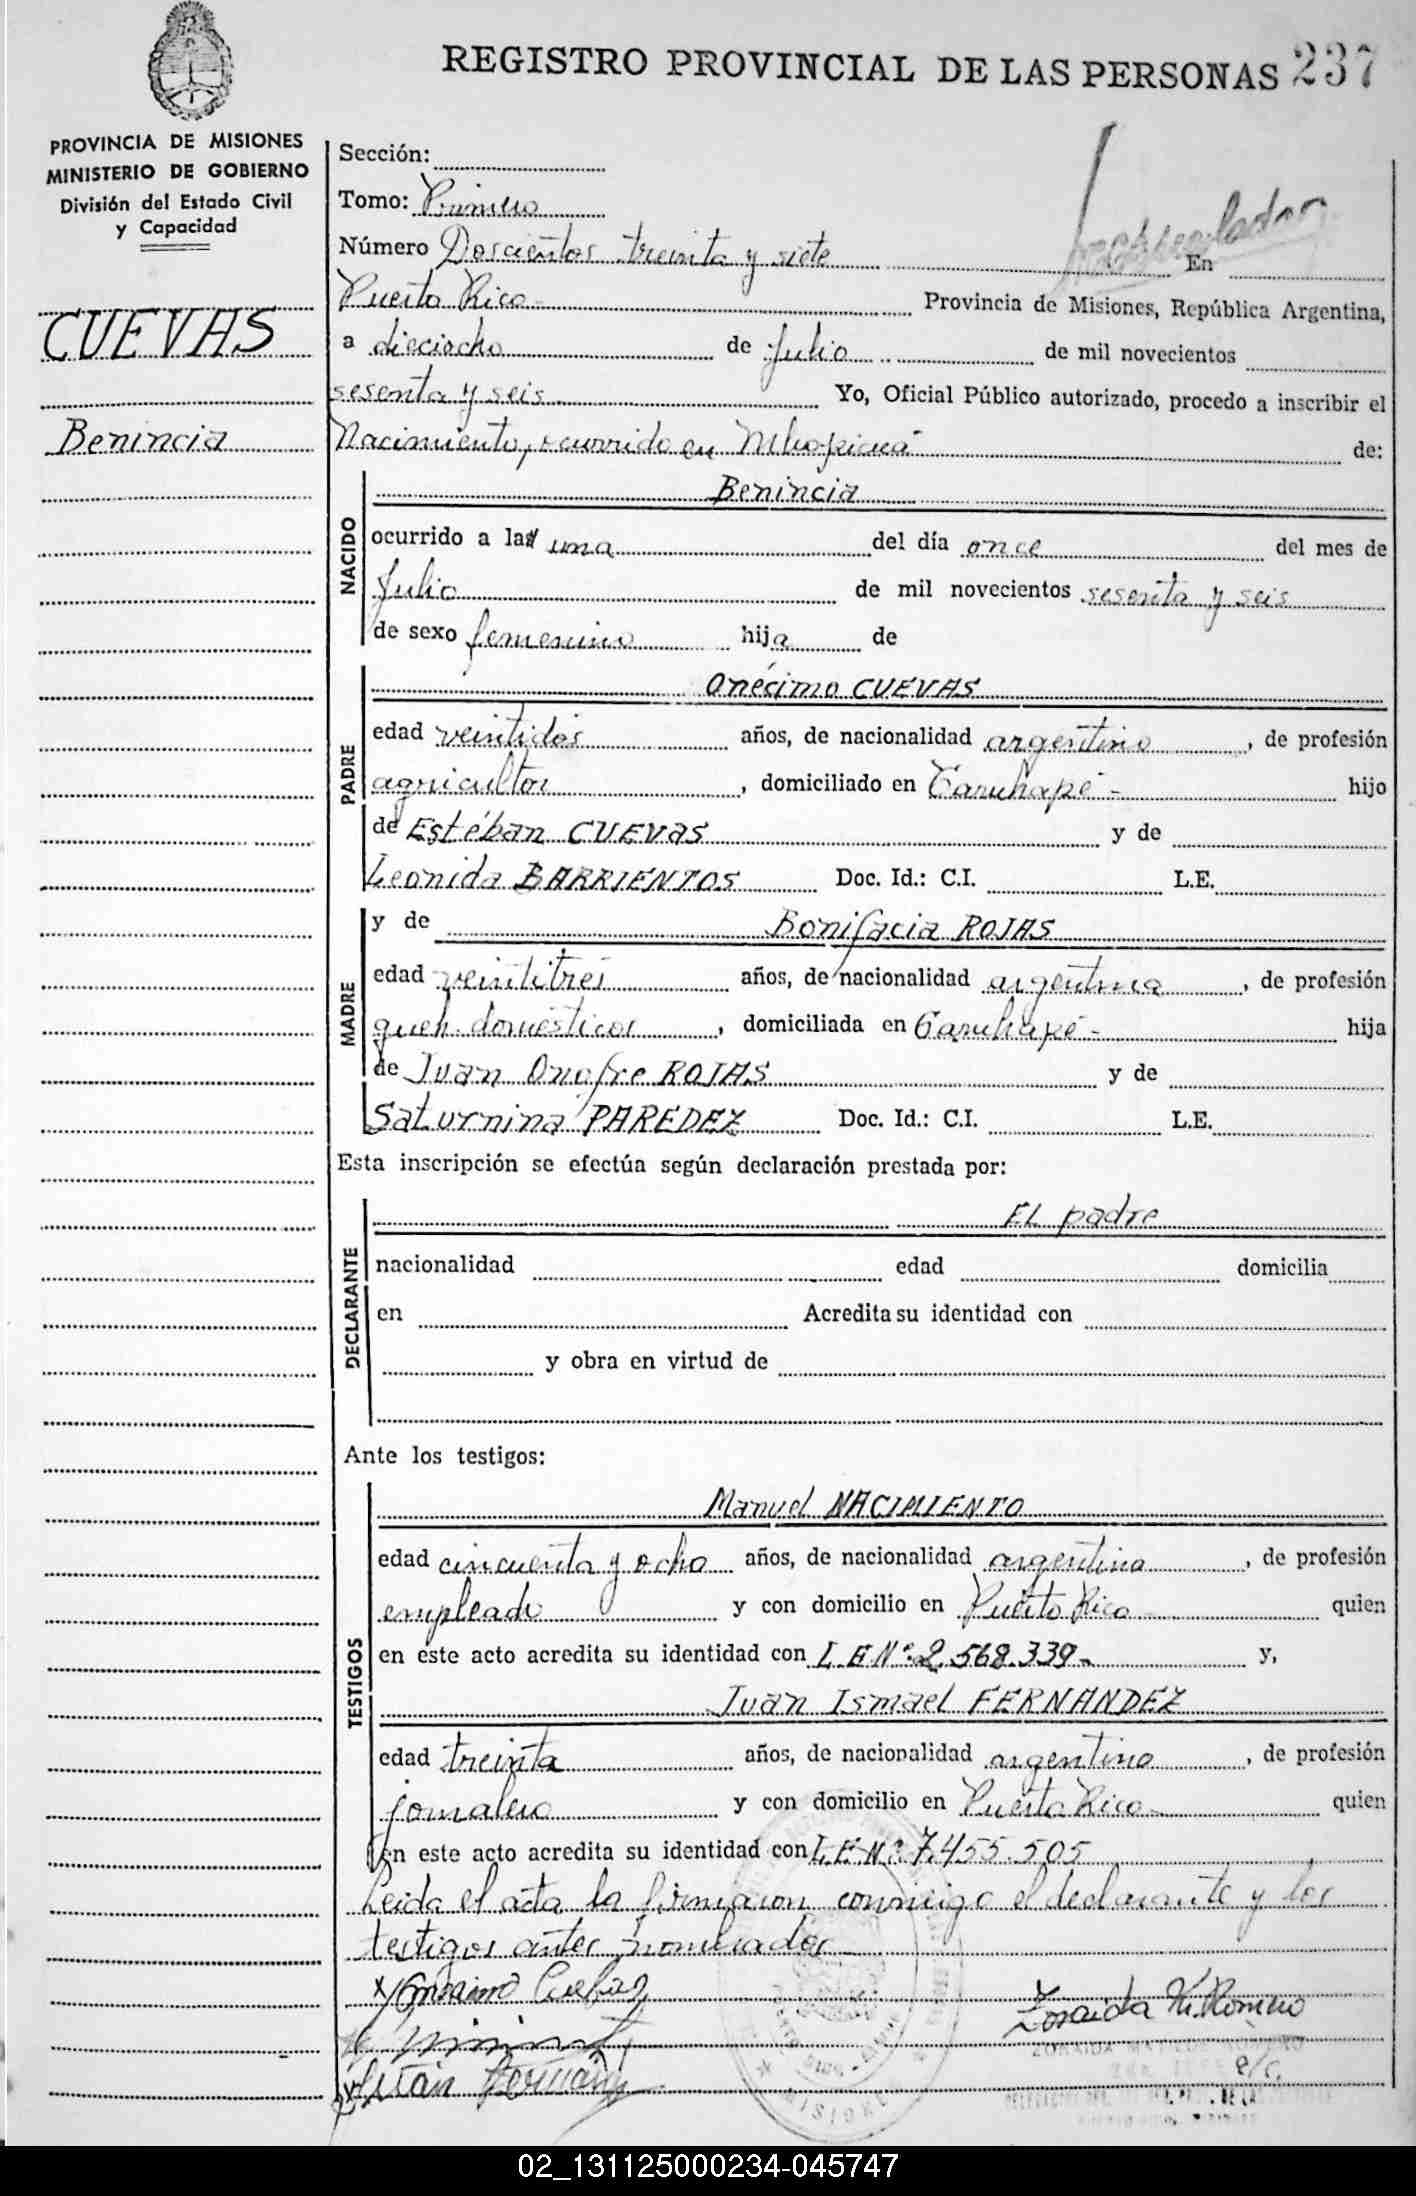 REGISTRO PROVINCIAL DE LAS PERSONAS 237
PROVINCIA DE MISIONES
MINISTERIO DE GOBIERNO
División del Estado Civil
y Capacidad
CUEVAS
Benincia
Sección:
Tomo: Primero
Número Doscientos treinta y siete En
Puerto Rico - Provincia de Misiones, República Argentina,
a dieciocho de Julio de mil novecientos
sesenta y seis Yo, Oficial Público autorizado, procedo a inscribir el
Nacimiento, ocurrido en de:
NACIDO
Benincia
ocurrido a las una del día once del mes de
Julio de mil novecientos sesenta y seis
de sexo femenino hija de
PADRE
Onécimo CUEVAS
edad veintidos años, de nacionalidad argentino, de profesión
agricultor, domiciliado en Caruhapé - hijo
de Estéban CUEVAS y de
Leonida BARRIENTOS Doc. Id.: C.I. L.E.
MADRE
y de Bonifacia ROJAS
edad veintitres años, de nacionalidad argentina, de profesión
queh. domésticos, domiciliada en Caruhapé - hija
de Juan Onofre ROJAS y de
Saturnina PAREDEZ Doc. Id.: C.I. L.E.
Esta inscripción se efectúa según declaración prestada por:
DECLARANTE
EL padre
nacionalidad edad domicilia
en Acredita su identidad con
y obra en virtud de
Ante los testigos:
TESTIGOS
Manuel NACIMIENTO
edad cincuenta y ocho años, de nacionalidad argentina, de profesión
empleado y con domicilio en Puerto Rico - quien
en este acto acredita su identidad con L E Nº 2.568.339- y,
Juan Ismael FERNANDEZ
edad treinta años, de nacionalidad argentino, de profesión
jornalero y con domicilio en Puerto Rico - quien
en este acto acredita su identidad con L.E.Nº 7.455.505
Leida el acta la firmaron conmigo el declarante y los
testigos antes nombrados -
Zoraida M. Romero
MISIONES
02_131125000234-045747